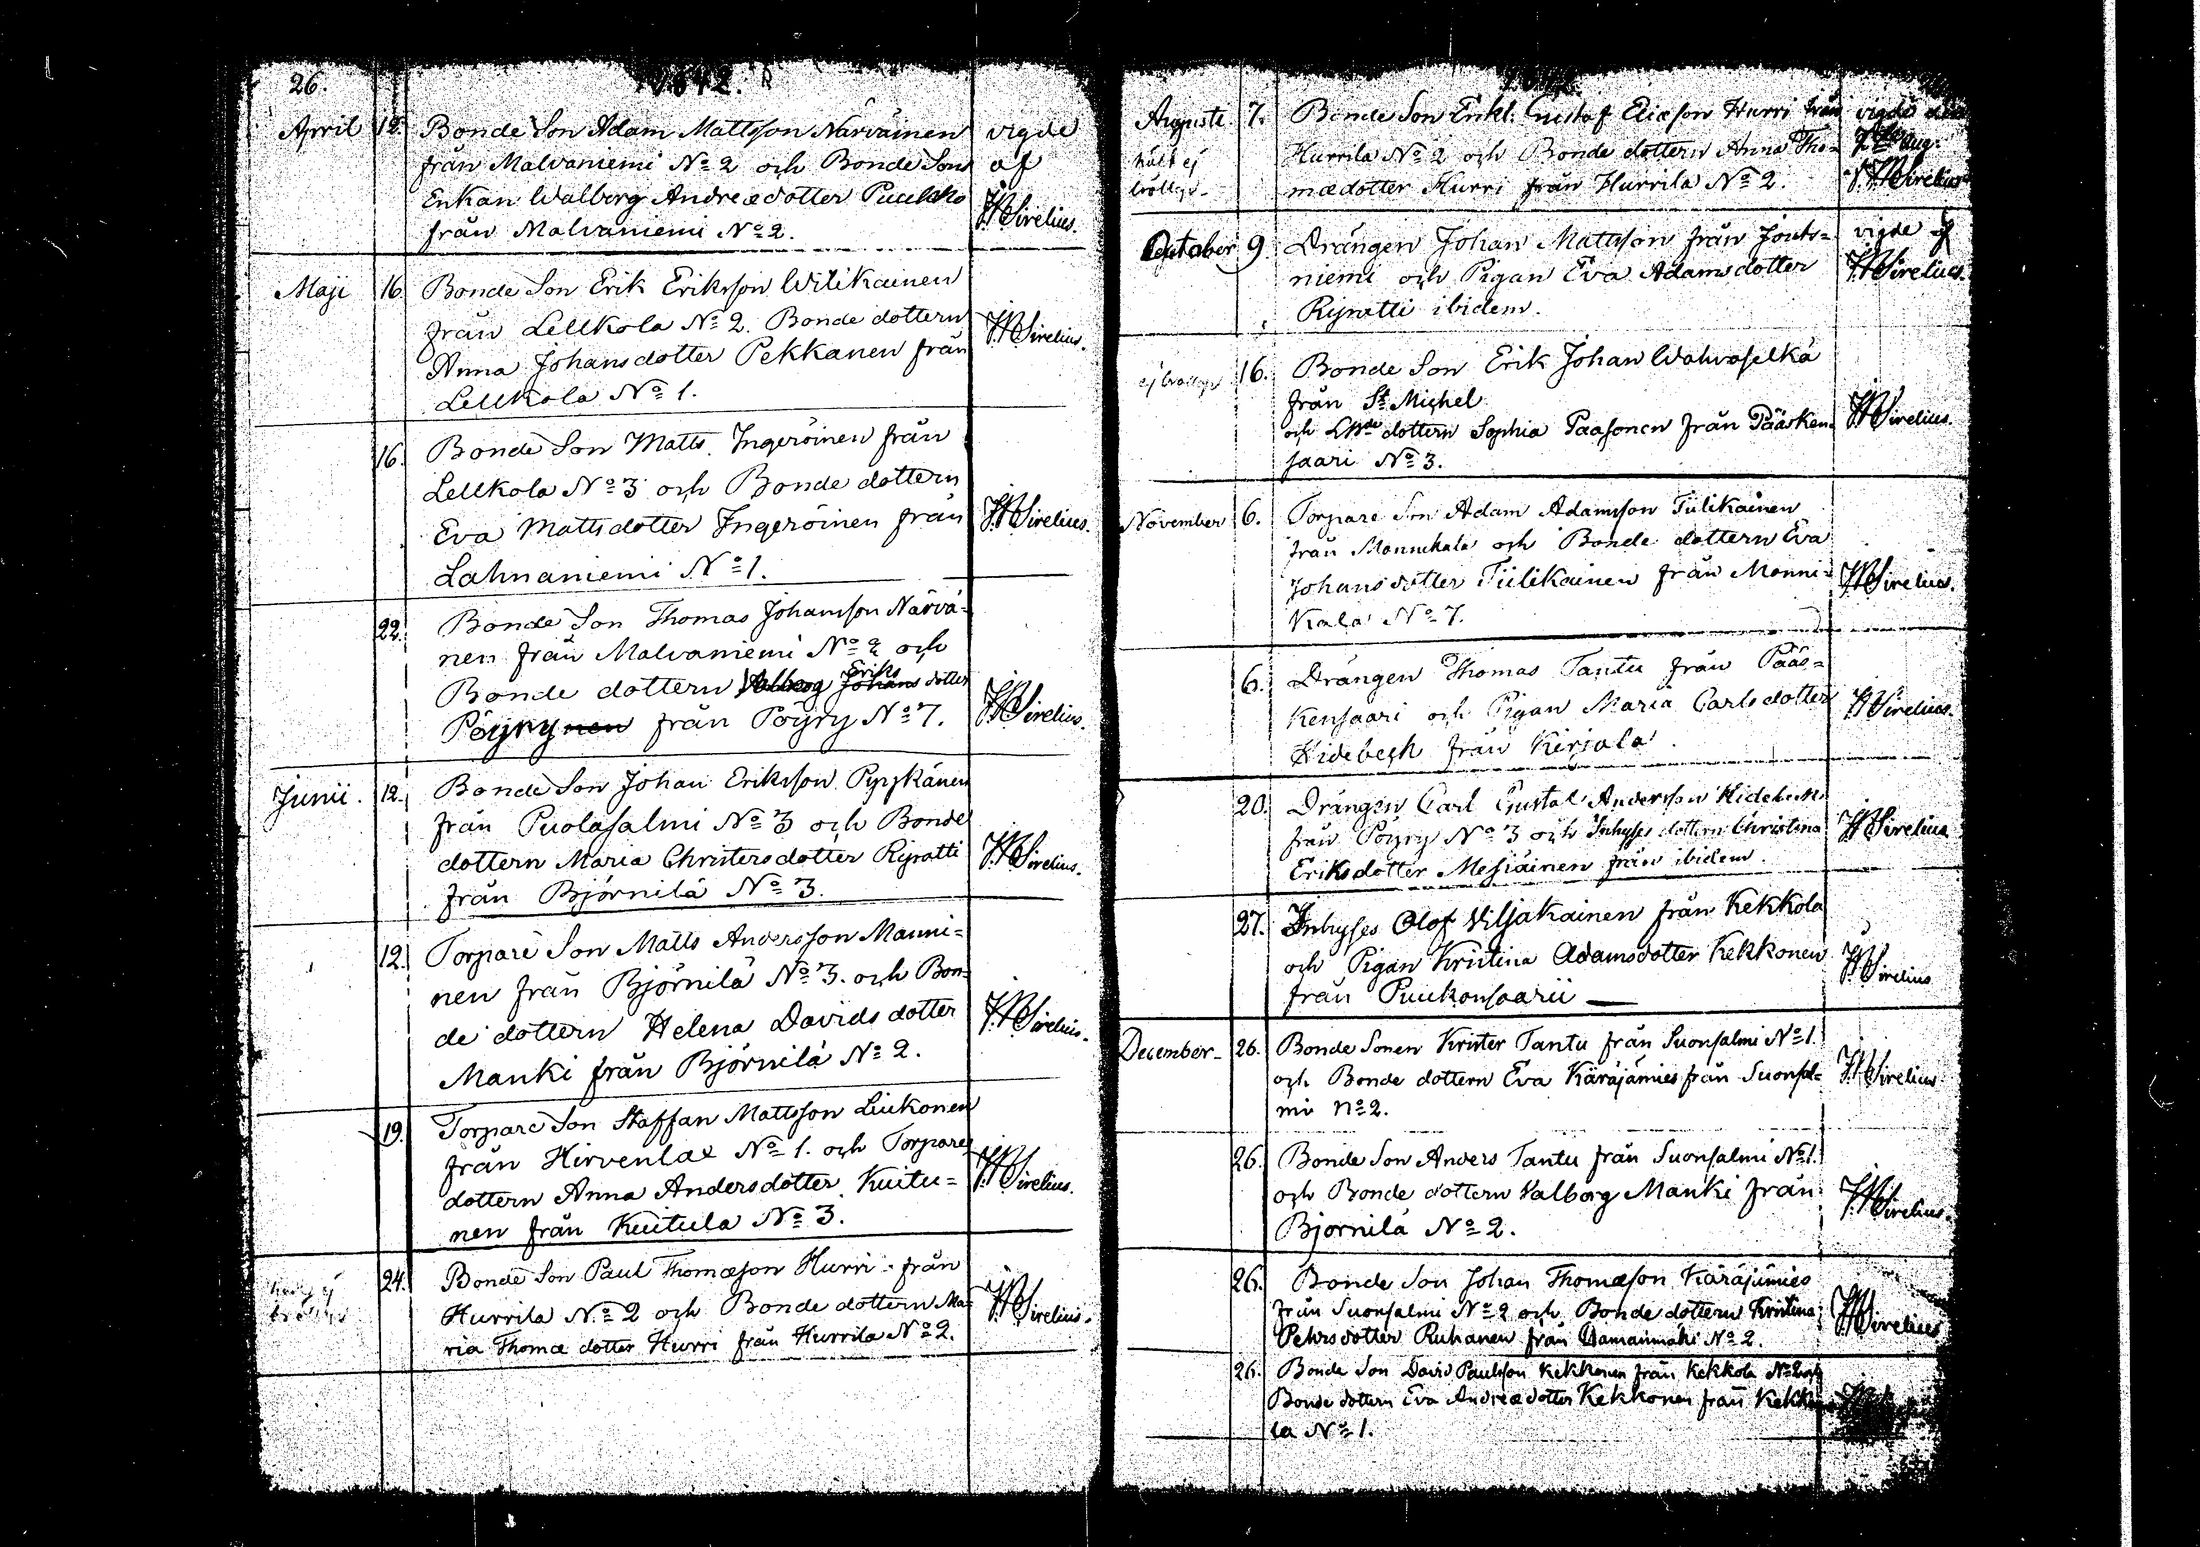 26.
1842.
April 12. Bonde Son Adam Mattsson Närväinen vigde
från Malvaniemi No 2 och Bonde Sons af
Enkan Walborg Andreædotter Puukko J.W.Sirelius.
från Malvaniemi No 2.
Maji 16 Bonde Son Erik Eriksson Wilikainen
från Lellkola No 2. Bonde dottern J.W.Sirelius.
Anna Johansdotter Pekkanen från
Lellkola No 1.
16. Bonde Son Matts Ingeröinen från
Lellkola No 3 och Bonde dottern
Eva Mattsdotter Ingeröinen från J.W.Sirelius.
Lahnaniemi No 1.
22. Bonde Son Thomas Johansson Närvä-
nen från Malvaniemi No 2 och
Eriks
Bonde dottern Valborg Johans dotter
Pöyrynen från Pöyry No 7. J.W.Sirelius.
Junii. 12. Bonde Son Johan Eriksson Pyyskänen
från Puolasalmi No 3 och Bonde
dottern Maria Christersdotter Ryratti J.W.Sirelius.
från Björnilä No 3.
12. Torpare Son Matts Andersson Manni-
nen från Björnilä No 3. och Bon-
de dottern Helena Davidsdotter J.W.Sirelius.
Manki från Björnilä No 2.
19. Torpare Son Staffan Mattsson Liukonen
från Hirvenlax No 1. och Torpare
dottern Anna Andersdotter Kuitu- J.W.Sirelius.
nen från Kuitula No 3.
24. Bonde Son Paul Thomæson Hurri från
Hurrila No 2 och Bonde dottern Ma- J.W.Sirelius.
ria Thomæ dotter Hurri från Hurrila No 2.
Auguste 7. Bonde Son Enkl. Gustaf Ericson Hurri från vigde den
håll ej Hurrila No 2 och Bonde dottern Anna Tho- aug.
bröllop mædotter Hurri från Hurrila No 2. J.W.Sirelius
October 9 Drängen Johan Mattsson från Jouts- vigde af
niemi och Pigan Eva Adamsdotter J.W.Sirelius.
Ryratti ibidem.
ej bröllop 16. Bonde Son Erik Johan Wahvaselkä
från St Michel
och dottern Sophia Paasonen från Pääsken- J.W.Sirelius.
saari No 3.
November 6. Torpare Son Adam Adamsson Tiilikainen
från Mannikala och Bonde dottern Eva
Johansdotter Tiilikainen från Monni- J.W.Sirelius.
kala No 7.
6. Drängen Thomas Tantu från Pääs-
kensaari och Pigan Maria Carlsdotter J.W.Sirelius.
Hidebeck från Kirjala.
20. Drängen Carl Gustaf Andersson Hidebeck
från Pöyry No 3 och Inhyses dottern Christina J.W.Sirelius
Eriksdotter Mesiäinen från ibidem.
27. Inhyses Olof Viljakainen från Kekkola
och Pigan Kristina Adamsdotter Kekkonen J.W.Sirelius
från Puukonsaarii
December 26. Bonde Sonen Krister Tantu från Suonsalmi No 1.
och Bonde dottern Eva Käräjämies från Suonsal- J.W.Sirelius
mi No 2.
26. Bonde Son Anders Tantu från Suonsalmi No 1.
och Bonde dottern Valborg Manki från J.W.Sirelius.
Bjornilä No 2.
26. Bonde Son Johan Thomæson Käräjämies
från Suonsalmi No 2 och Bonde dottern Kristina J.W.Sirelius
Pehrsdotter Ruhanen från Damainmäki No 2.
26. Bonde Son David Paulsson Kekkonen från Kekkola No 2 och
Bonde dottern Eva Andreædotter Kekkonen från Kekko-
la No 1.